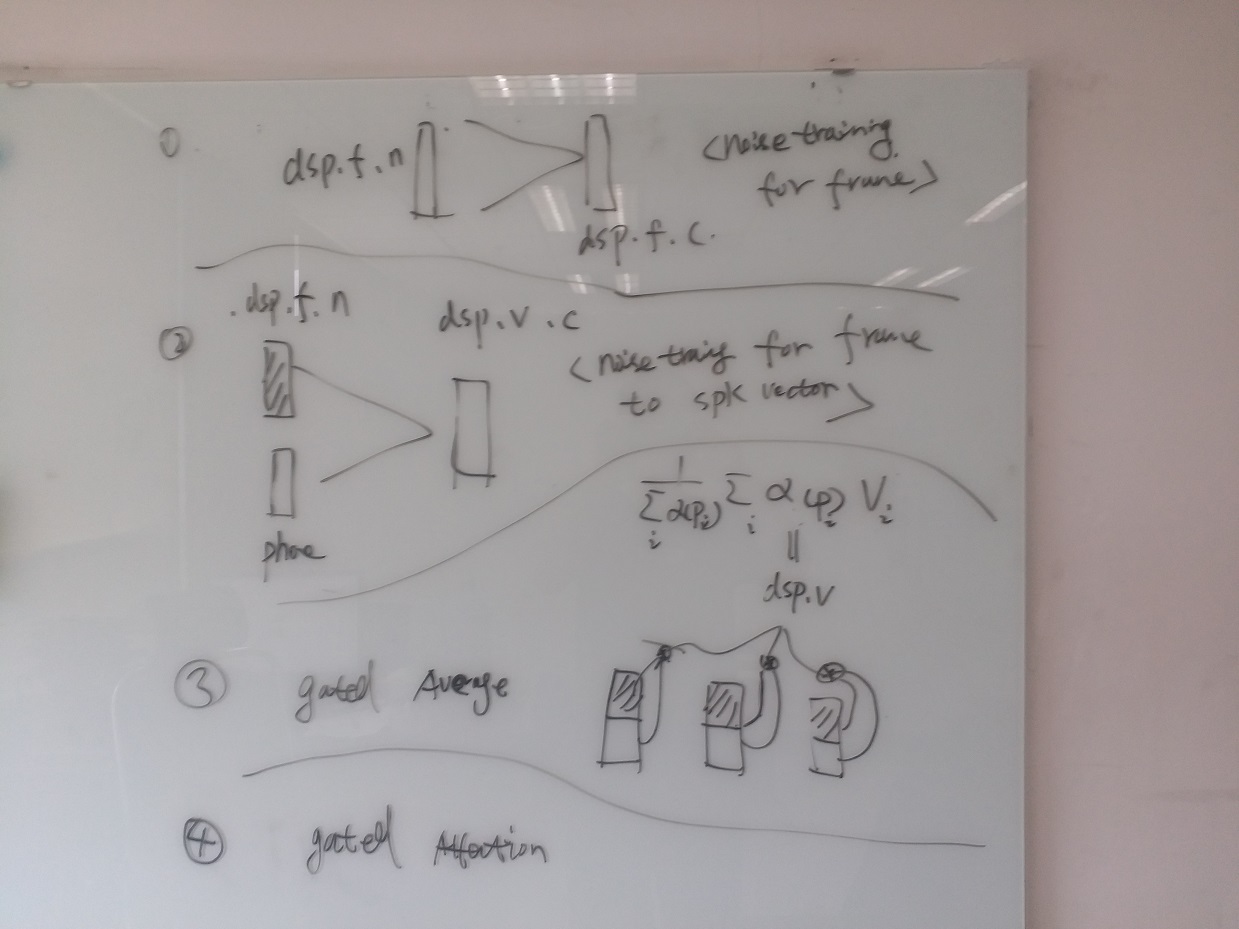 ①
dsp.f.n
<noise training
for frame>
dsp.f.c.
②
.dsp.f.n
dsp.v.c
<noise traig for frame
to spk vector>
phone
1/∑i α(pi) ∑i α(pi) Vi
||
dsp.v
③ gated Average
④ gated Attention